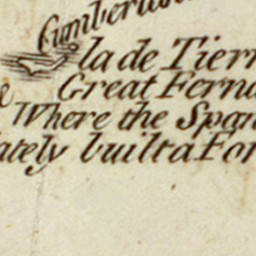 Cumberland
la de Tierr
Great Ferna
Where the Span
lately built a For